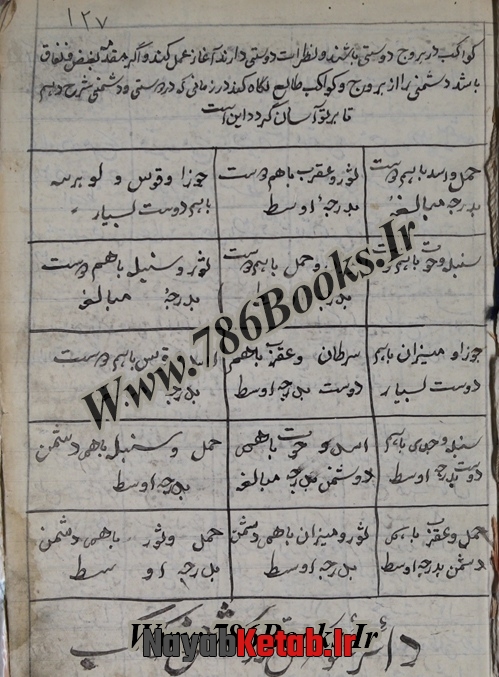 ۱۲۷
کواکب در بروج دوستی باشند و نظرات دوستی دارند آغاز عمل کند و اگر مقدمه بغض و نفاق
باشد دشمنی را از بروج و کواکب طالع نگاه کند در زمانی که در دوستی و دشمنی شرح دهم
تا بر تو آسان گردد این است
حمل و اسد باهم دوست
بدرجهٔ مبالغه
ثور و عقرب باهم دوست
بدرجهٔ اوسط
جوزا و قوس و لو هر سه
باهم دوست بسیار
سنبله و حوت باهم
و حمل باهم
بدر
ثور و سنبله باهم دوست
بدرجهٔ مبالغه
جوزا و میزان باهم
دوست بسیار
سرطان و عقرب باهم
دوست بدرجه اوسط
باهم دوست
بدرجه
سنبله و جدی باهم
دوست بدرجه اوسط
اسد و حوت باهمی
دوشمن بدرجه مبالغه
حمل و سنبله باهمی دشمن
بدرجه اوسط
حمل و عقرب باهمی
دشمن بدرجه اوسط
ثور و میزان باهمی دشمن
بدرجه اوسط
حمل و ثور باهمی دشمن
بدرجه اوسط
Www.786Books.Ir
Www.786Books.Ir
NayabKetab.Ir